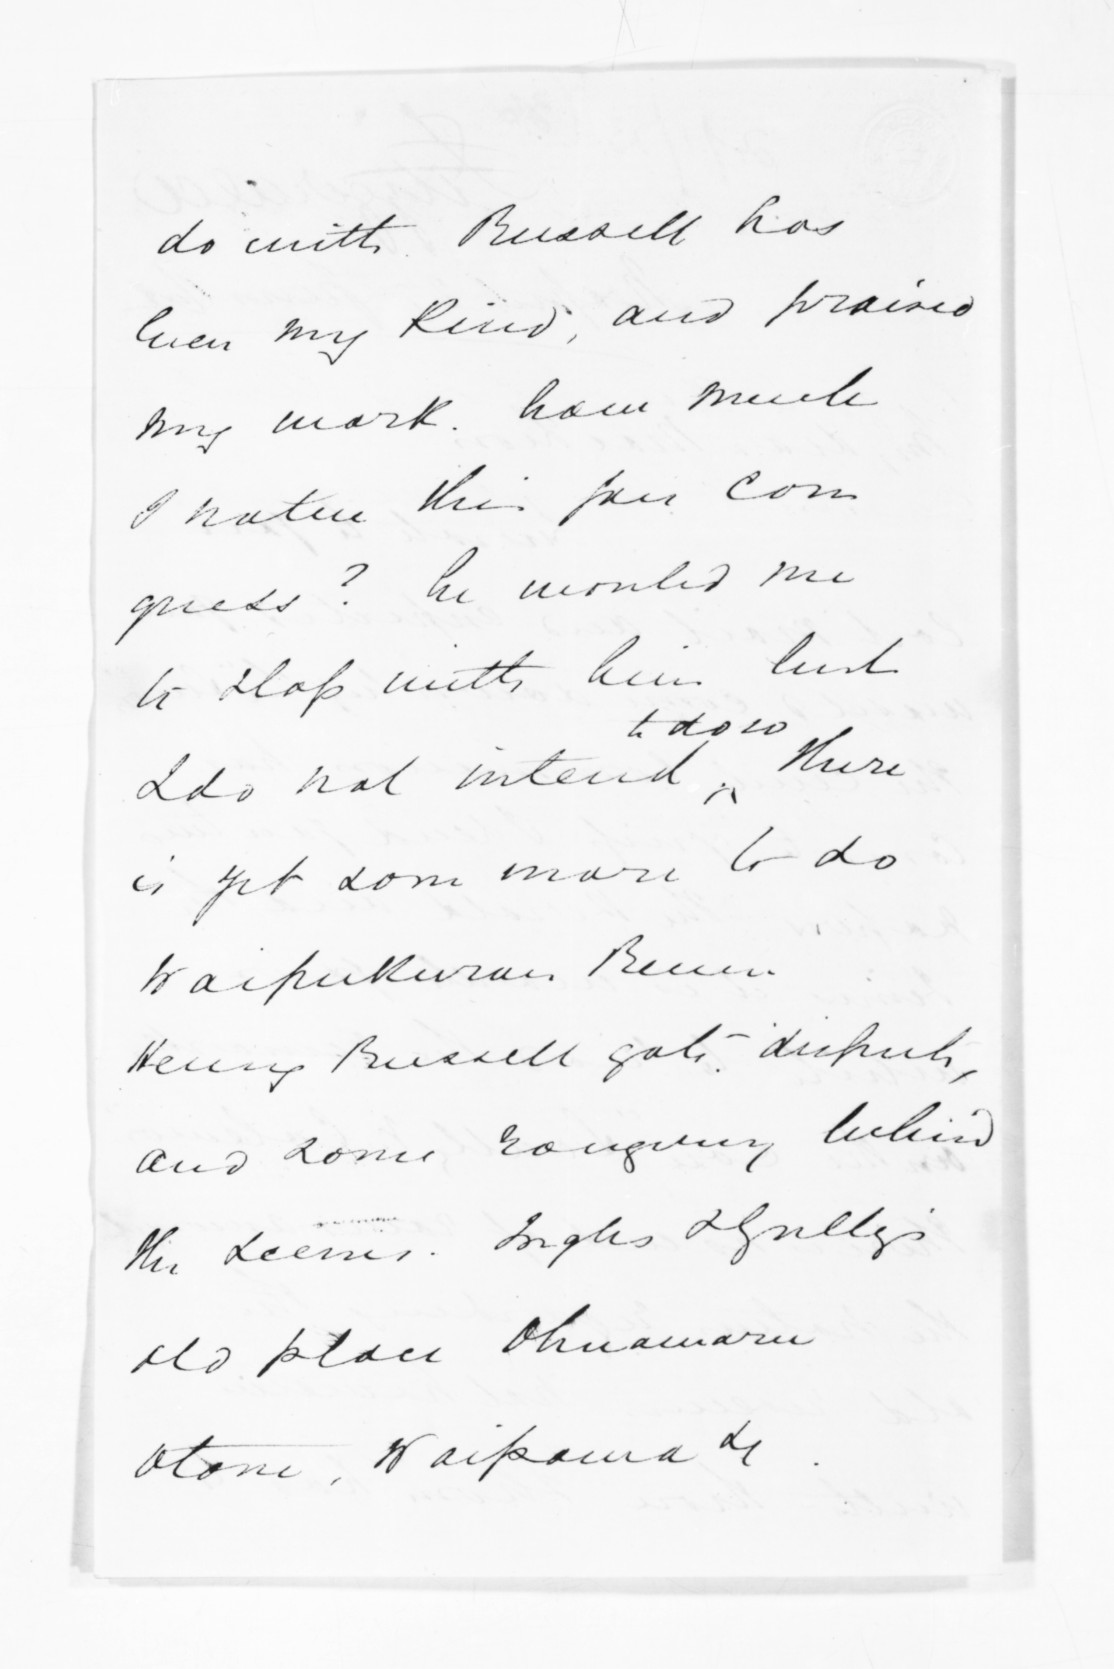 do with. Russell has
been my kind, and praised
my work. how much
I value this you can
guess? he wanted me
to stop with him but
I do not intend to do so There
is yet some more to do
Waipukurau
Henry Russell dispute,
and some roguery behind
the scenes. Inglis
old place
Otane, Waipawa &c.